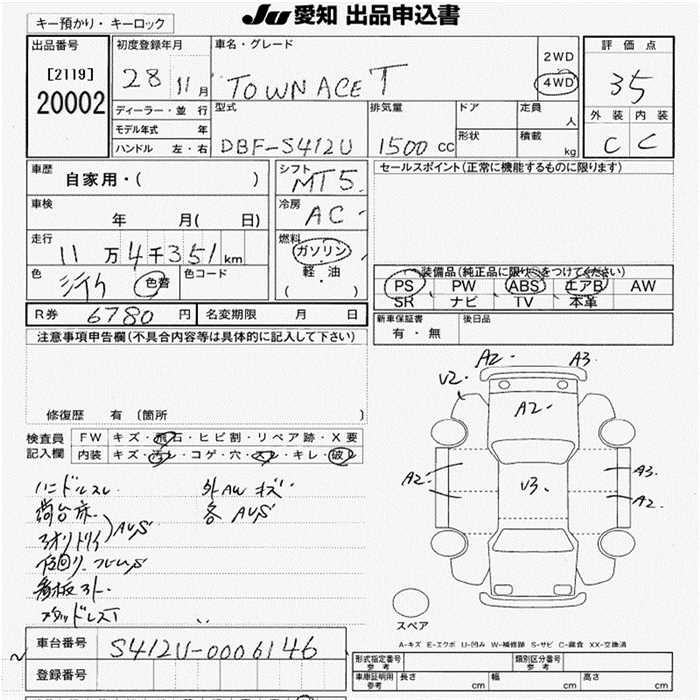 JU 愛知 出品申込書
キー預かり・キーロック
出品番号
[2119]
20002
初度登録年月
28 11 月
車名・グレード
TOWN ACE T
2WD
4WD
評価点
3.5
外装 内装
C C
ディーラー・並行
モデル年式 年
ハンドル 左・右
型式
DBF-S412U
排気量
1500 cc
ドア
形状
定員
人
積載
kg
車歴
自家用・( )
シフト
MT 5
セールスポイント(正常に機能するものに限ります)
車検
年 月( 日)
冷房
AC
走行
11 万 4 千 351 km
燃料
ガソリン
軽・油
( )
色
色替
色コード
装備品(純正品に限り○をつけてください)
PS PW ABS エアB AW
SR ナビ TV 本革
R券 6780 円
名変期限 月 日
新車保証書
有・無
後日品
注意事項申告欄(不具合内容等は具体的に記入して下さい)
修復歴 有 (箇所 )
検査員
記入欄
FW キズ・飛石・ヒビ割・リペア跡・X要
内装 キズ・汚レ・コゲ・穴・スレ・キレ・破レ
ハンドルスレ
外AWキズ
荷台床
各 AUS
アオリトリイ AUS
下回り フレームS
看板跡
スタッドレスT
A2
A3
V2
A2
A2
V3
A3
A2
スペア
A-キズ E-エクボ U-凹み W-補修跡 S-サビ C-腐食 XX-交換済
車台番号 S412U-0006146
登録番号
形式指定番号
参考
類別区分番号
参考
車庫証明用
参考
長さ cm
幅 cm
高さ cm